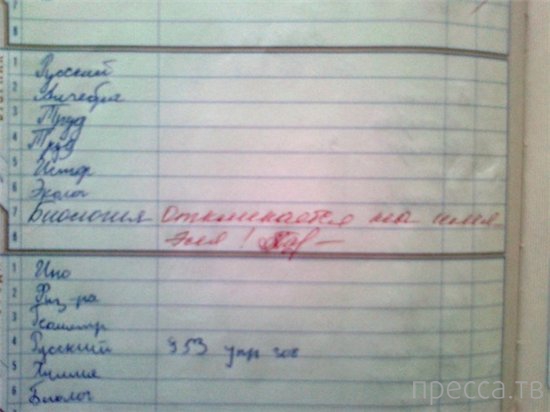 8
1 Русский
2 Алгебра
3 Труд
4 Труд
5 Истор
6 Эколог
7 Биология откликается на имя
8
1 Ино
2 Физ-ра
3 Геометр
4 Русский 353 упр
5 Химия
6 Биолог
пресса.тв